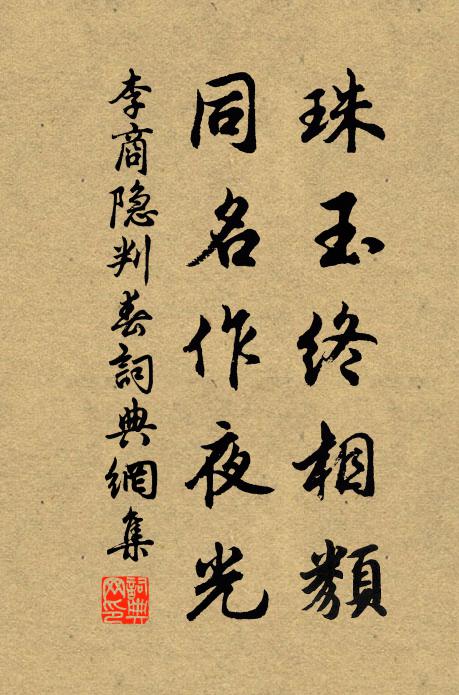 珠玉终相類
同名作夜光
李商隐判春詞典網集
詞典網印